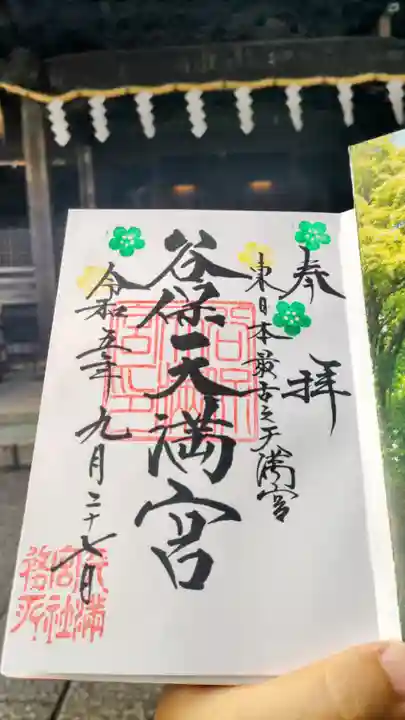 奉拝
東日本最古之天満宮
谷保天満宮
令和五年九月二十七日
天満宮社務所